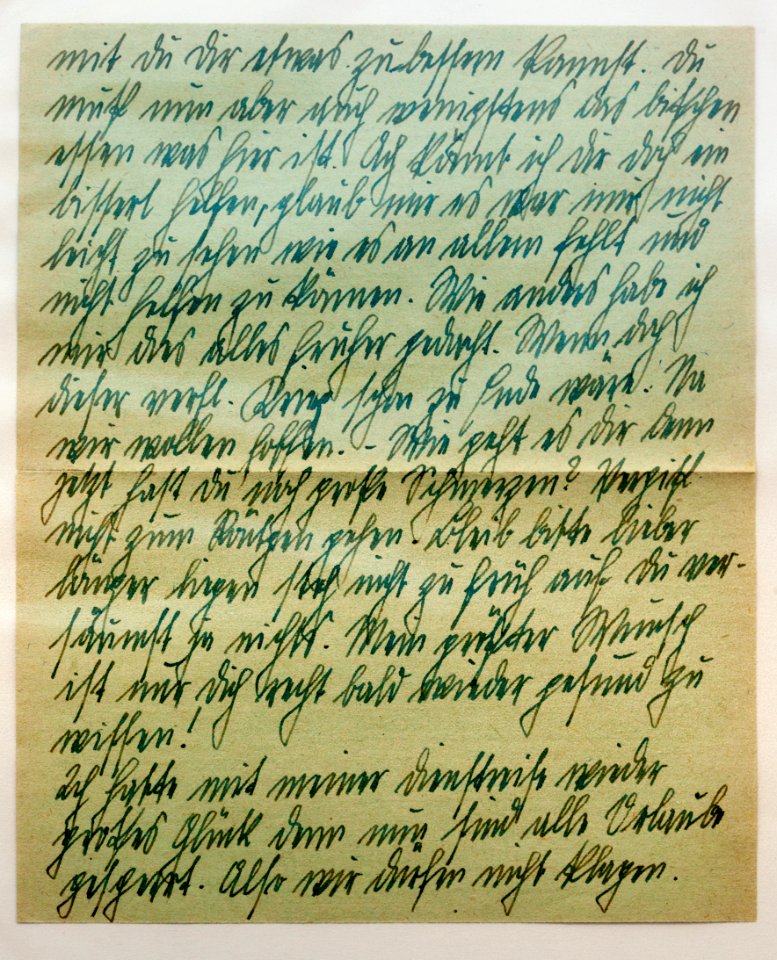 mit du dir etwas zu bessern kannst. Du
mußt nun aber auch wenigstens das bißchen
essen was hier ist. Ach könnt ich dir doch ein
bisserl helfen, glaub mir es war mir nicht
leicht zu sehen wie es an allem fehlt und
nicht helfen zu können. Wie anders habe ich
mir das alles früher gedacht. Wenn doch
dieser verfl. Krieg schon zu Ende wäre. Na
wir wollen hoffen. - Wie geht es dir denn
jetzt hast du noch große Schmerzen?
nicht zum gehen. Bleib bitte lieber
länger liegen steh nicht zu früh auf. Du ver-
säumst ja nichts. Mein größter Wunsch
ist nur dich recht bald wieder gesund zu
wissen!
Ich hatte mit meiner Dienstreise wieder
großes Glück denn nun sind alle Urlaube
gesperrt. Also wir dürfen nicht klagen.